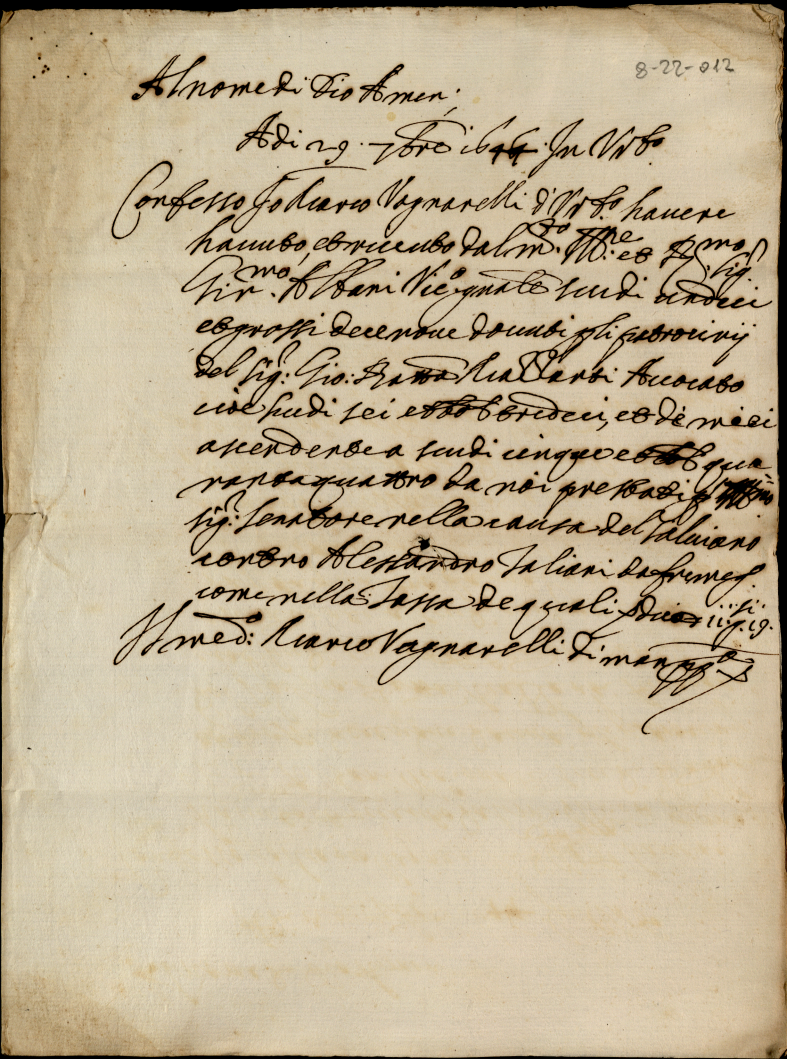 8-22-012
Al nome di Dio Amen.
Adi 29 7bre 1644 In Urbo
Confesso Io Marco Vagnarelli d'Urbo havere
havuto, et riceuuto dal m.to Ill.re et R.mo Sig.r
Gir.mo Albani Vic.o gnale scudi undici
et grossi decenove douuti p li patrocinij
del Sig.r Gio: Batta Avocato
cioè scudi sei et bredeci, et de miei
ascendente a scudi cinque et qua=
rantaquattro da noi prestati p
sig.r Senatore nella causa del Salviano
contro Alessandro Taliani da
come nella Tassa de quali 11 g. 19.
Il med.o Marco Vagnarelli di man ppa